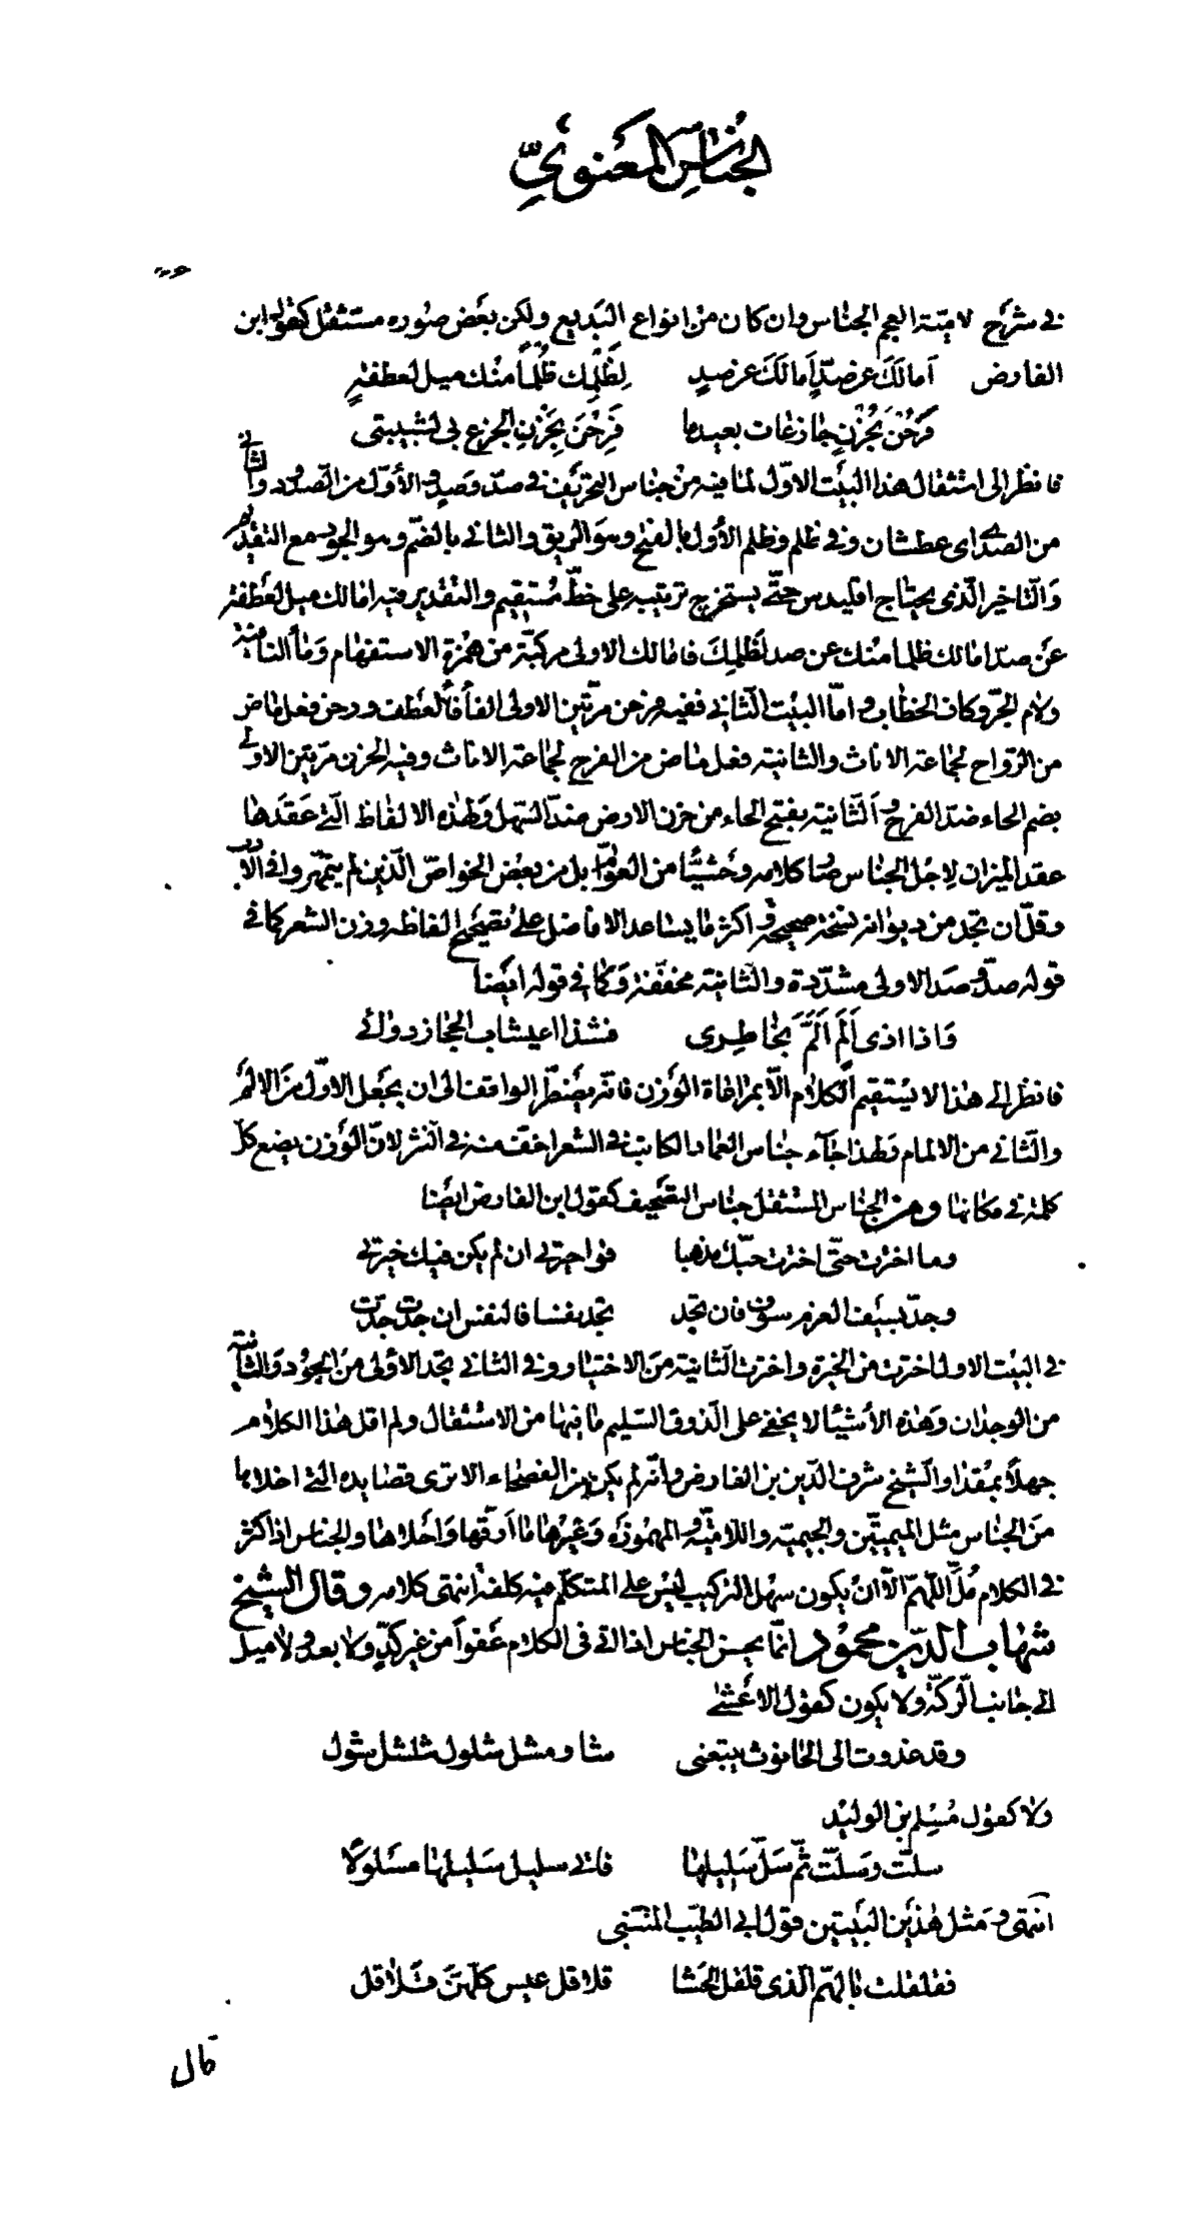 الجناس المعنوي
في شرح لامية العجم الجناس وان كان من انواع البديع ولكن بعض صوره مستثقل كقوله ابن
الفارض أمالك عن صدّ أمالك عن صدٍ لظلمك ظلما منك ميل لعطفة
فرحن بحزن جازعات بعيدما فرحن بحزن الجزع بي لشبيبتي
فانظر الى استثقال هذا البيت الاوّل لما فيه من جناس التحريف في صدّ وصدٍ والأوّل من الصدود والثاني
من الصدى اى عطشان وفي ظلم وظلم الأول بالفتح وهو الريق والثاني بالضم وهو الجور مع التقديم
والتاخير الّذى يحتاج اقليدس حتّى يستخرج ترتيبه على خطّ مستقيم والتقدير فيه امالك ميل لعطفة
عن صدّ امالك ظلما منك عن صد لظلمك فامالك الاولى مركبة من همزة الاستفهام وما النافية
ولام الجرّ وكاف الخطاب وامّا البيت الثاني ففيه فرحن مرّتين الاولى الفا فاء العطف ورحن فعل ماض
من الرّواح لجماعة الاناث والثانية فعل ماض من الفرح لجماعة الاناث وفيه الحزن مرتين الاولى
بضم الحاء ضدّ الفرح والثانية بفتح الحاء من حزن الارض ضدّ السّهل ولهذه الالفاظ التي عقدها
عقد الميزان لاجل الجناس صار كلامه وحشيّا من العوامّ بل من بعض الخواصّ الّذين لم يتمهّروا في الأدب
وقلّ ان تجد من ديوانه نسخة صحيحة وفي اكثر ما يساعد الافاضل على تصحيح الفاظه وزن الشعر كما في
قوله صدّ وصد الاولى مشدّدة والثانية مخففة وكما في قوله ايضا
واذا اذى ألم ألمّ بخاطرى فشذا اعيشاب الحجاز دوائي
فانظر الى هذا لا يستقيم الكلام الّا بمراعاة الوزن فانه يضطرّ الواقف الى ان يجعل الاوّل من الالم
والثاني من الالمام ولهذا جاء جناس العماد الكاتب في الشعر اخفّ منه في النثر لانّ الوزن يضع كلّ
كلمة في مكانها ومن الجناس المستثقل جناس التصحيف كقول ابن الفارض ايضا
وما اخترت حتّى اخترت حبّك مذهبا فواحيرتي ان لم يكن فيك خيرتي
وجدّ بسيف العزم سوف فان تجد تجد نفسا فالنفس ان جدت جدّت
في البيت الاولى اخترت من الخبرة واخترت الثانية من الاختيار وفي الثاني تجد الاولى من الجود والثانية
من الوجدان وهذه الأشيئا لا يخفى على الذوق السّليم ما فيها من الاستثقال ولم اقل هذا الكلام
جهلا بمقدار الشيخ شرف الدّين بن الفارض وانّه لم يكن من الفصحاء الا ترى قصايده الّتي اخلاها
من الجناس مثل الميميتين والجيمية واللاميّة والمهموزه وغيرها ما ارقّها واحلاها والجناس اذا كثر
في الكلام مُلّ اللهمّ الّا ان يكون سهل التركيب ليس على المتكلّم فيه كلفة انتهى كلامه وقال الشيخ
شهاب الدّين محمود انّما يحسن الجناس اذا اتى فى الكلام عفوا من غير كدّ ولا بعد ولا ميل
الى جانب الركّة ولا يكون كقول الاعشى
وقد غدوت الى الحانوت يتبعنى شاو مشل شلول شلشل شول
ولا كقول مسلم بن الوليد
سلّت وسلّت ثمّ سلّ سليلها فاتى سليل سليلها مسلولا
انتهى ومثل هذين البيتين قول ابي الطيّب المتنبي
فقلقلت بالهمّ الّذى قلقل الحشا قلاقل عيس كلّهنّ قلاقل
قال